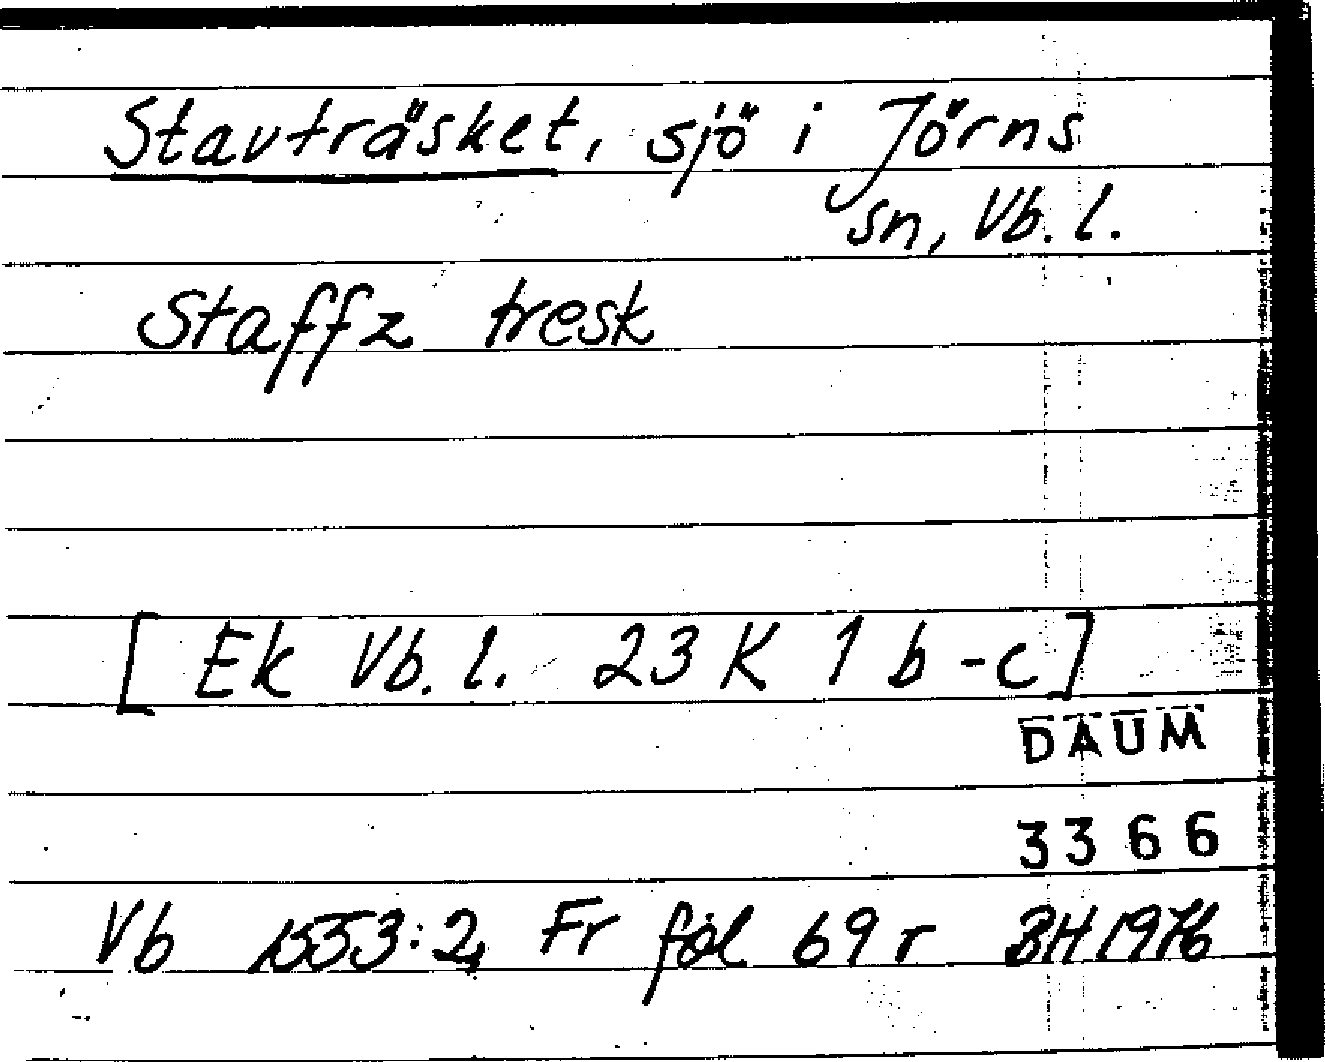 Stavträsket, sjö i Jörns
sn, Vb. l.
Staffz tresk
[Ek Vb. l. 23 K 1 b-c]
DAUM
3366
Vb 1553:2, Fr fol 69 r BH 1976